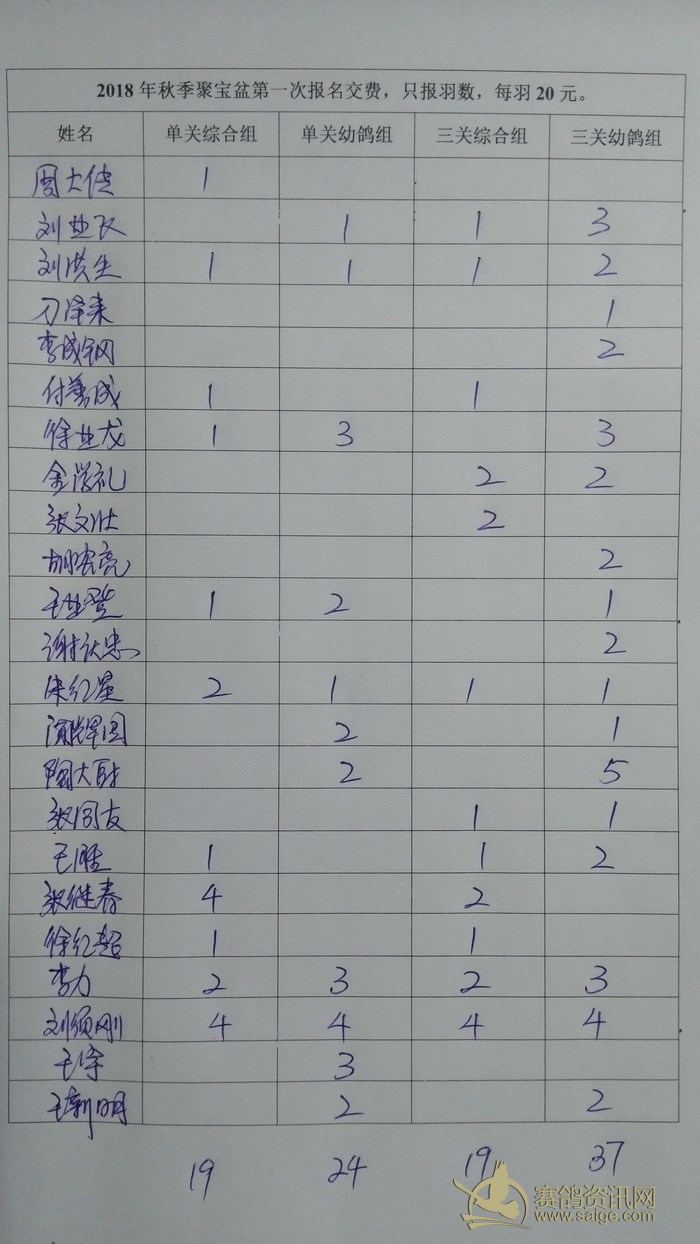 2018年秋季聚宝盆第一次报名交费，只报羽数，每羽20元。
姓名 单关综合组 单关幼鸽组 三关综合组 三关幼鸽组
周大侠 1
刘业飞 1 1 3
刘洪生 1 1 1 2
刁泽来 1
李成钢 2
付善成 1 1
徐业龙 1 3 3
金学礼 2 2
张文壮 2
胡宏亮 2
王业堂 1 2 1
谢认忠 2
朱红星 2 1 1 1
辉国 2 1
陶大 2 5
张同友 1 1
王胜 1 1 2
张继春 4 2
徐红超 1 1
李力 2 3 2 3
刘须刚 4 4 4 4
王宇 3
王新明 2 2
19 24 19 37
赛鸽资讯网
www.saige.com